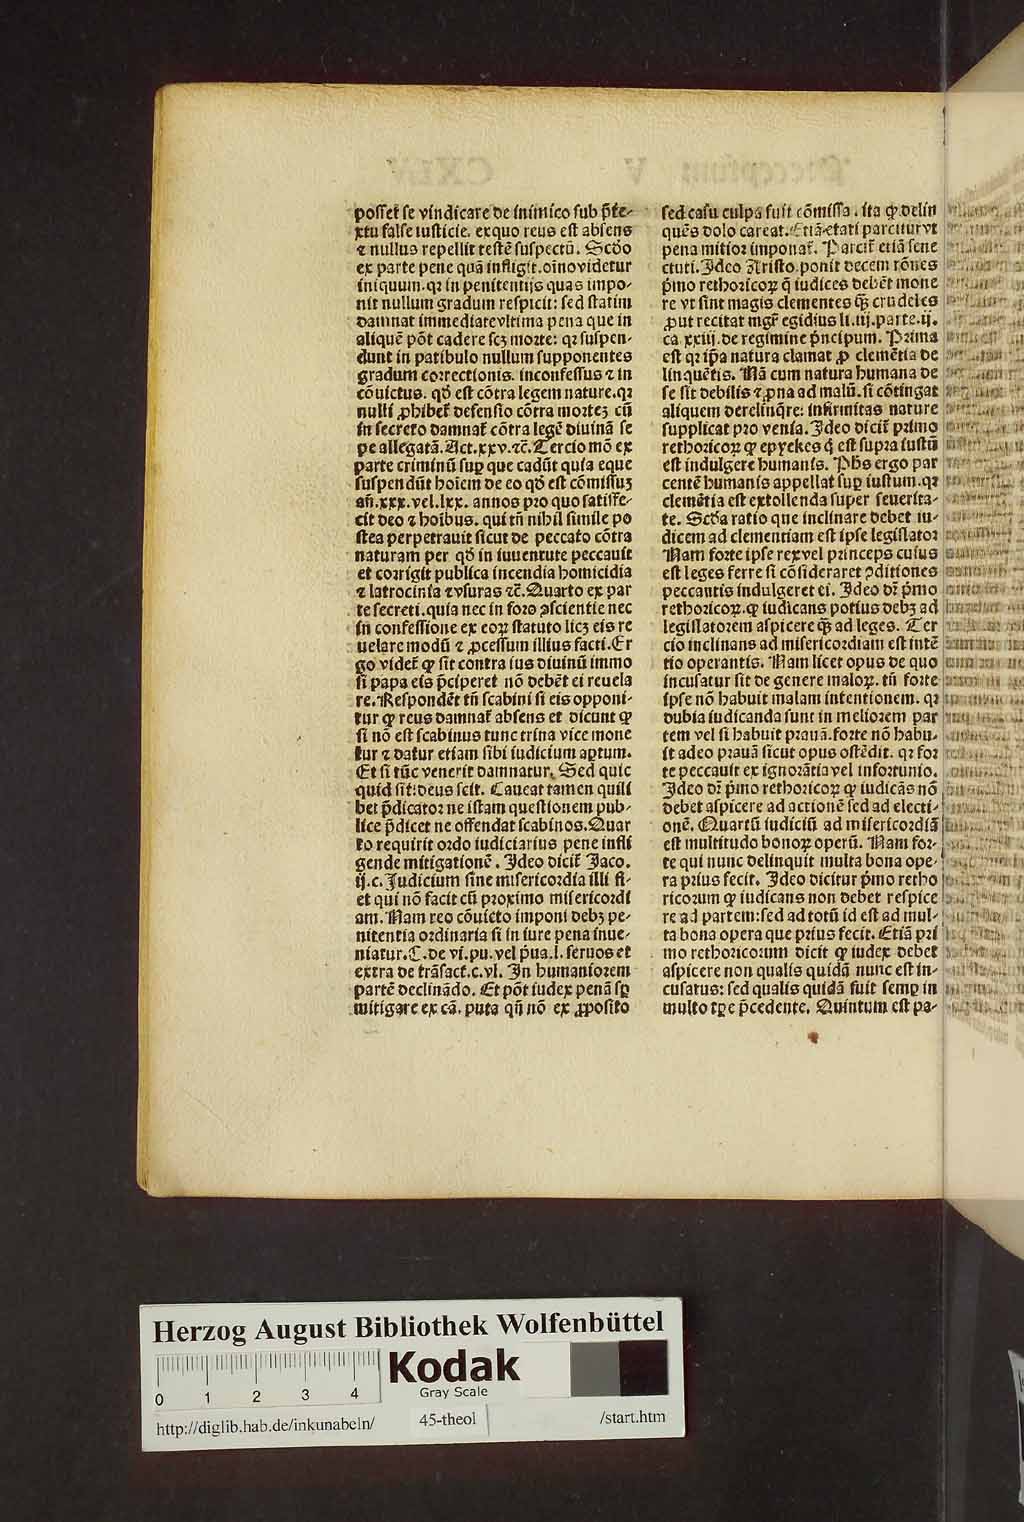 posset̄ se vindicare de inimico sub p̄te-
xtu false iusticie. ex quo reus est absens
⁊ nullus repellit testē suspectū. Scd́o
ex parte pene quā infligit. oīno videtur
iniquum. qꝛ in penitentijs quas impo-
nit nullum gradum respicit: sed statim
damnat immediate vltima pena que in
aliquē pōt cadere scꝫ morte: qꝛ suspen-
dunt in patibulo nullum supponentes
gradum correctionis. inconfessus ⁊ in
cōuictus. qd́ est cōtra legem nature. qꝛ
nulli ꝓhibet̄ defensio cōtra morteꝫ cū
in secreto damnat̄ cōtra legē diuinā se
pe allegatā. Act. xxv. ⁊c̄. Tercio mō ex
parte criminū suꝑ que cadūt quia eque
suspendūt hoīem de eo qd́ est cōmissuꝫ
añ. xxx. vel. lxx. annos pro quo satisfe-
cit deo ⁊ hoībus. qui tn̄ nihil simile po
stea perpetrauit sicut de peccato cōtra
naturam per qd́ in iuuentute peccauit
et corrigit publica incendia homicidia
⁊ latrocinia ⁊ vsuras ⁊c̄. Quarto ex par
te secreti. quia nec in foro ꝯscientie nec
in confessione ex eoꝝ statuto licꝫ eis re
uelare modū ⁊ ꝓcessum illius facti. Er
go videt̄ ꝙ sit contra ius diuinū immo
si papa eis p̄ciperet nō debēt ei reuela
re. Respondēt tn̄ scabini si eis opponi-
tur ꝙ reus damnat̄ absens et dicunt ꝙ
si nō est scabinus tunc trina vice mone
tur ⁊ datur etiam sibi iudicium aptum.
Et si tūc venerit damnatur. Sed quic
quid sit: deus scit. Caueat tamen quili
bet p̄dicator ne istam questionem pub-
lice p̄dicet ne offendat scabinos. Quar
to requirit ordo iudiciarius pene infli
gende mitigationē. Ideo dicit̄ Jaco.
ij. c. Judicium sine misericordia illi fi-
et qui nō facit cū proximo misericordi
am. Nam reo cōuicto imponi debꝫ pe-
nitentia ordinaria si in iure pena inue-
niatur. C. de vi. pu. vel p̄ua. l. seruos et
extra de trāsact. c. vl. In humaniorem
partē declinādo. Et pōt iudex penā sꝑ
mitigare ex cā. puta qn̄ nō ex ꝓposito
sed casu culpa fuit cōmissa. ita ꝙ delin
quēs dolo careat. Etiā etati parcitur vt
pena mitior imponat̄. Parcit̄ etiā sene
ctuti. Ideo Aristo. ponit decem rōnes
p̄mo rethoricoꝝ q̄ iudices debēt mone
re vt sint magis clementes ꝙ̄ crudeles
ꝓut recitat mgr̄ egidius li. iij. parte. ij.
ca xxiij. de regimine p̄ncipum. Prima
est qꝛ ip̄a natura clamat ꝓ clemētia de
linquētis. Nā cum natura humana de
se sit debilis ⁊ ꝓna ad malū. si cōtingat
aliquem derelinq̄re: infirmitas nature
supplicat pro venia. Ideo dicit̄ primo
rethoricoꝝ ꝙ epyekes q̄ est supra iustū
est indulgere humanis. Ph̄s ergo par
centē humanis appellat suꝑ iustum. qꝛ
clemētia est extollenda super seuerita-
te. Scd́a ratio que inclinare debet iu-
dicem ad clementiam est ipse legislator
Nam forte ipse rex vel princeps cuius
est leges ferre si cōsideraret ꝯditiones
peccantis indulgeret ei. Ideo dr̄ p̄mo
rethoricoꝝ. ꝙ iudicans potius debꝫ ad
legislatorem aspicere ꝙ̄ ad leges. Ter
cio inclinans ad misericordiam est intē
tio operantis. Nam licet opus de quo
incusatur sit de genere maloꝝ. tn̄ forte
ipse nō habuit malam intentionem. qꝛ
dubia iudicanda sunt in meliorem par
tem vel si habuit prauā. forte nō habu-
it adeo prauā sicut opus ostēdit. qꝛ for
te peccauit ex ignorātia vel infortunio.
Ideo dr̄ p̄mo rethoricoꝝ ꝙ iudicās nō
debet aspicere ad actionē sed ad electi-
onē. Quartū iudiciū ad misericordiā
est multitudo bonoꝝ operū. Nam for-
te qui nunc delinquit multa bona ope-
ra prius fecit. Ideo dicitur p̄mo retho
ricorum ꝙ iudicans non debet respice
re ad partem: sed ad totū id est ad mul-
ta bona opera que prius fecit. Etiā pri
mo rethoricorum dicit ꝙ iudex debet
aspicere non qualis quidā nunc est in-
cusatus: sed qualis quidā fuit semꝑ in
multo tꝑe p̄cedente. Quintum est pa-
Herzog August Bibliothek Wolfenbüttel
Kodak
Gray Scale
0 1 2 3 4
http://diglib.hab.de/inkunabeln/ 45-theol /start.htm